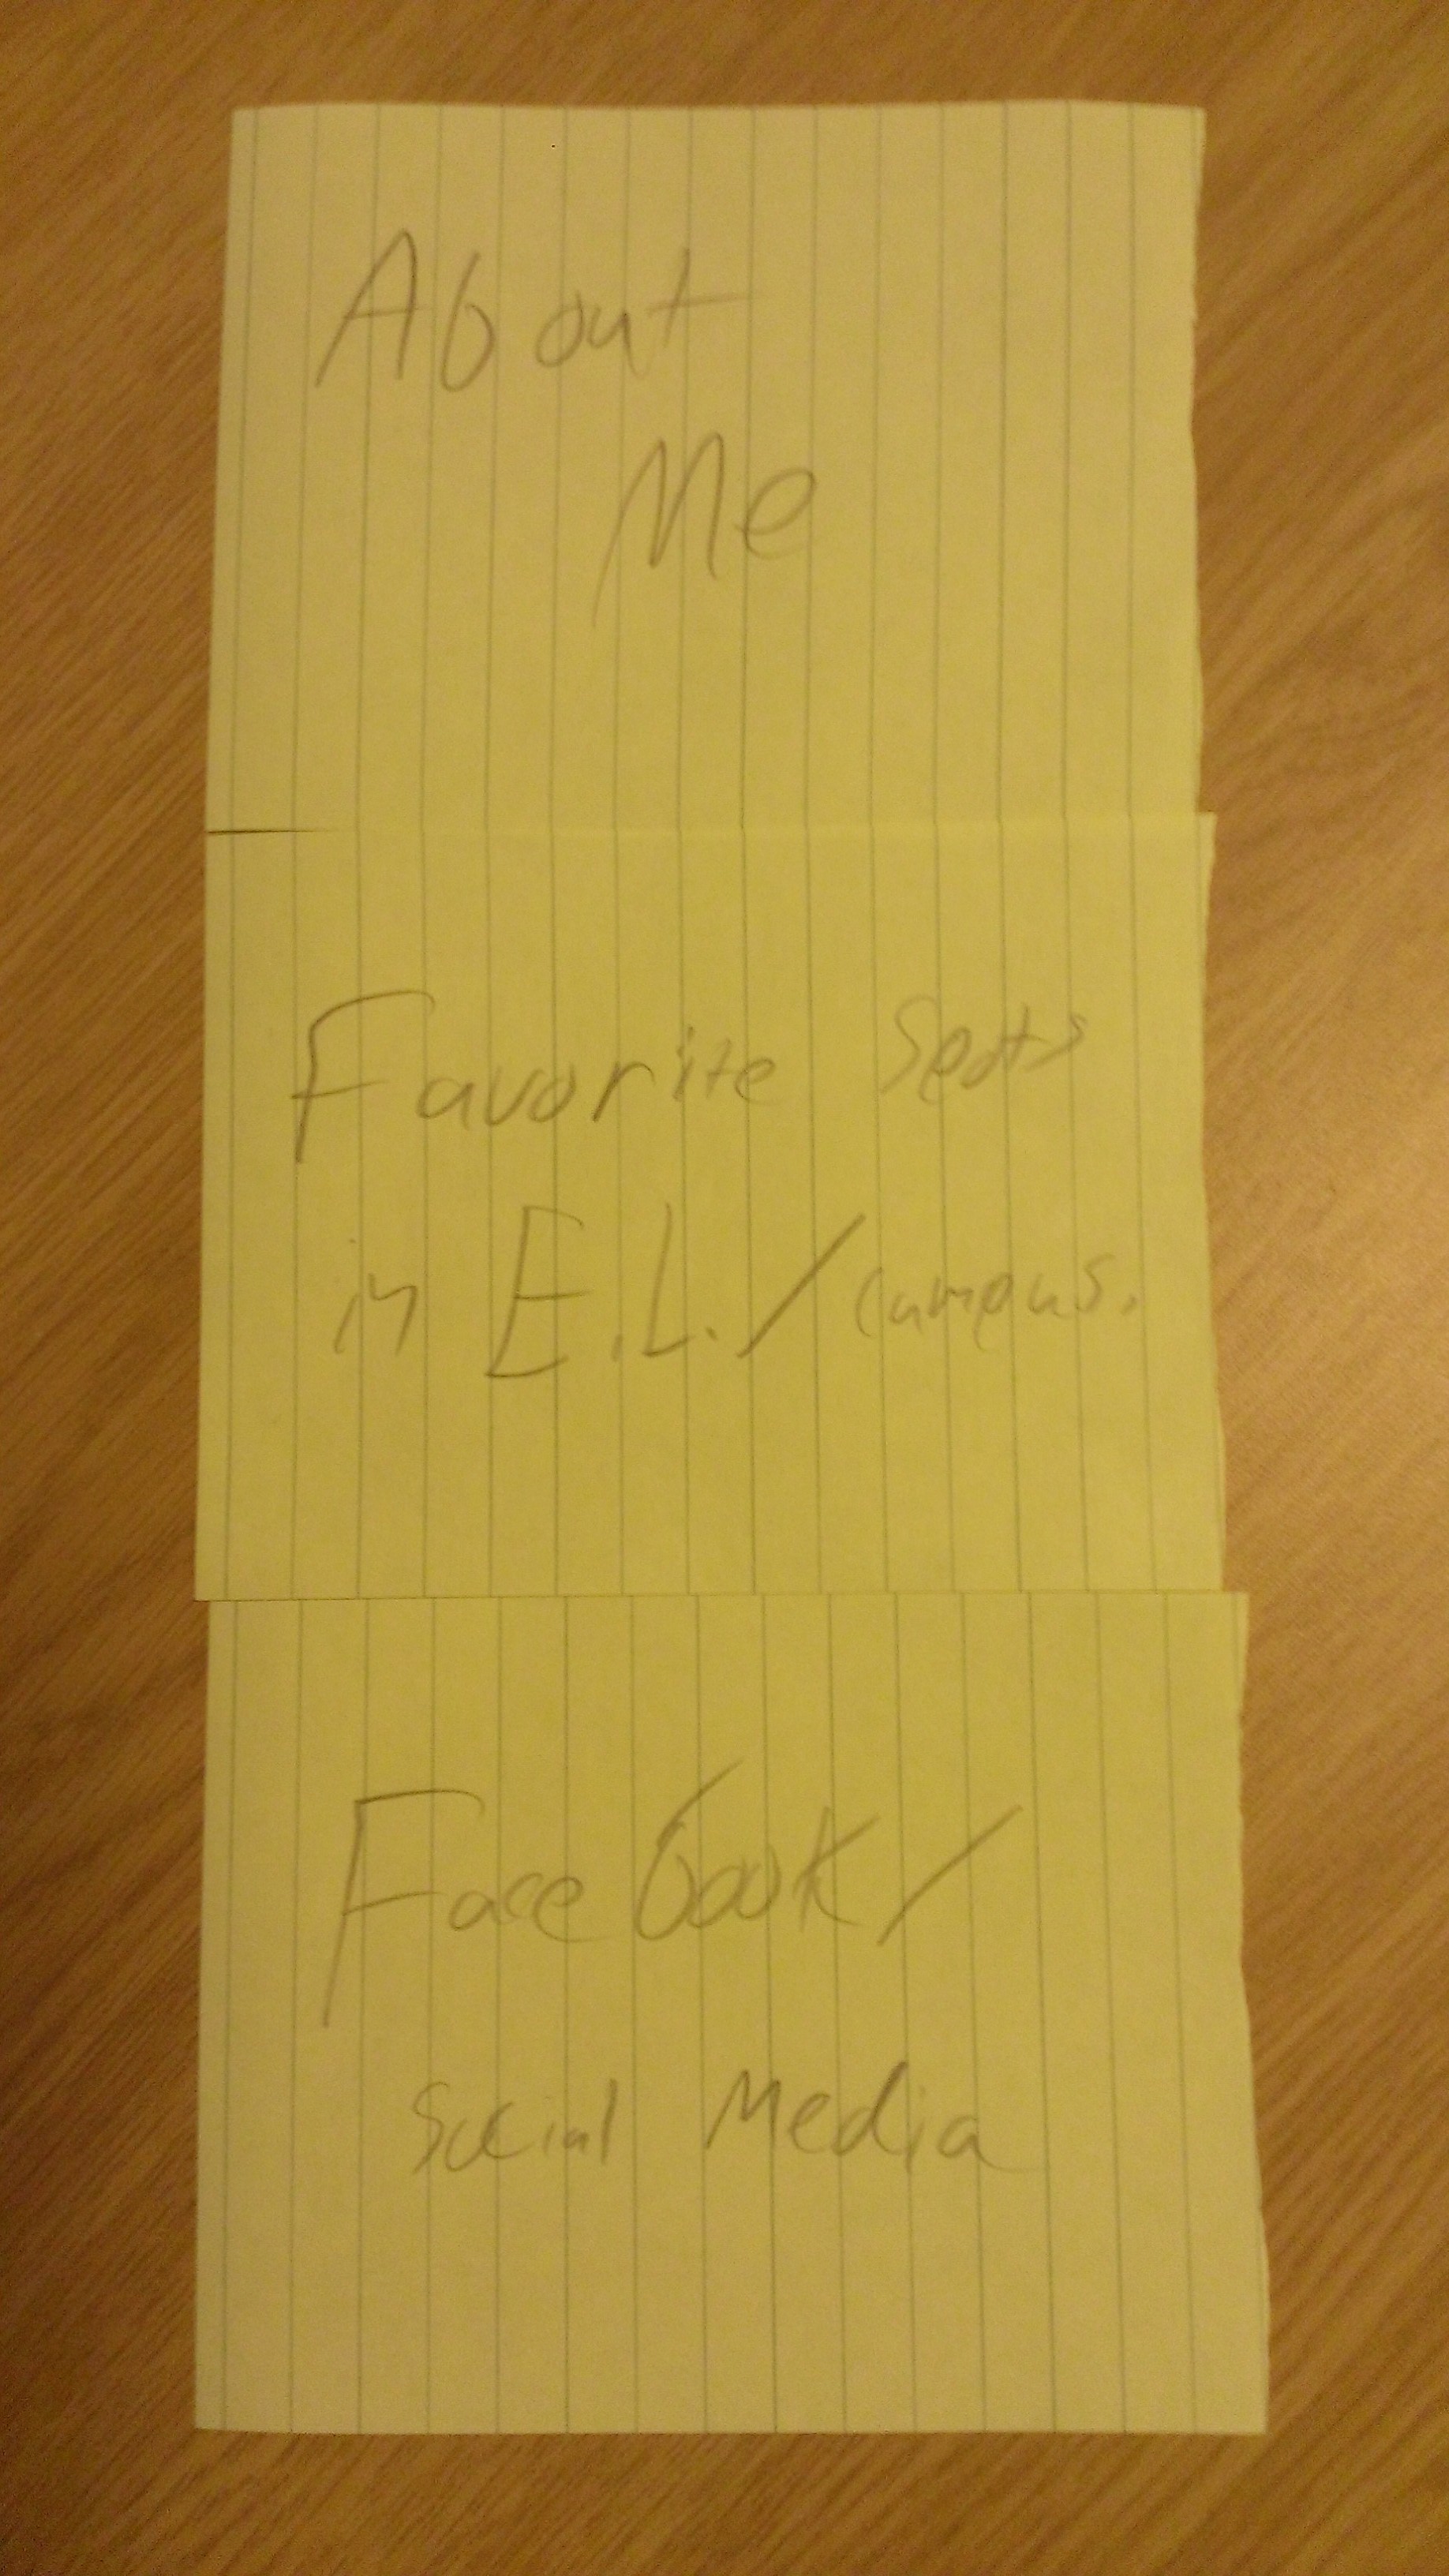 About
Me
Favorite Spots
in E.L./campus.
Facebook/
Social Media